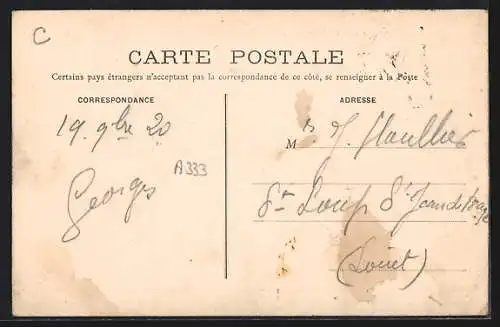 C
CARTE POSTALE
Certains pays étrangers n'acceptant pas la correspondance de ce côté, se renseigner à la Poste
CORRESPONDANCE
19. 9bre 20
Georges
A333
ADRESSE
M
St Loup St Jean de
(Loiret)